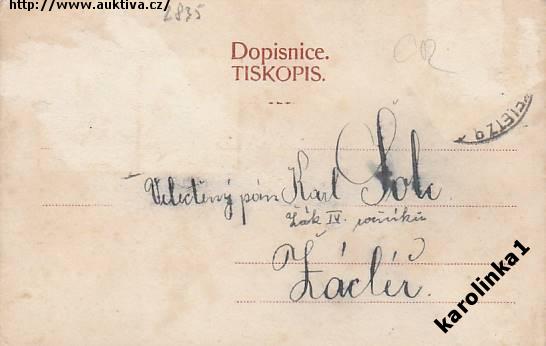 http://www.auktiva.cz/
2835
Dopisnice.
TISKOPIS.
ČR
Velectěný pán Karl Šolc
žák IV. ročníku
Žacléř.
karolinka1